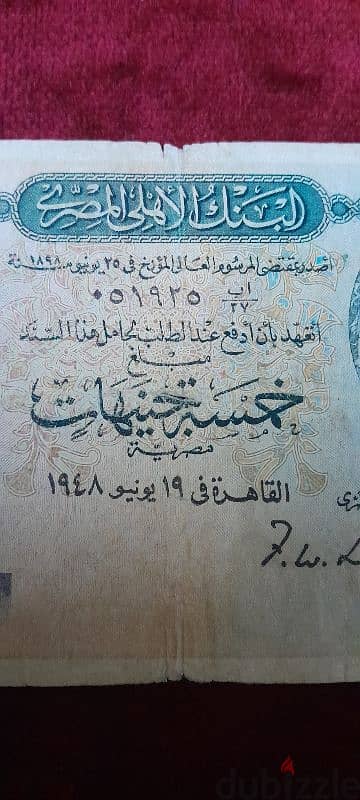 البنك الأهلى المصرى
أصدر بمقتضى المرسوم العالى المؤرخ فى ٢٥ يونيو سنة ١٨٩٨
٠٥١٩٢٥ اب/٢٧
أتعهد بأن أدفع عند الطلب لحامل هذا السند
مبلغ
خمسة جنيهات
مصرية
القاهرة فى ١٩ يونيو ١٩٤٨
F. W. L
dubizzle